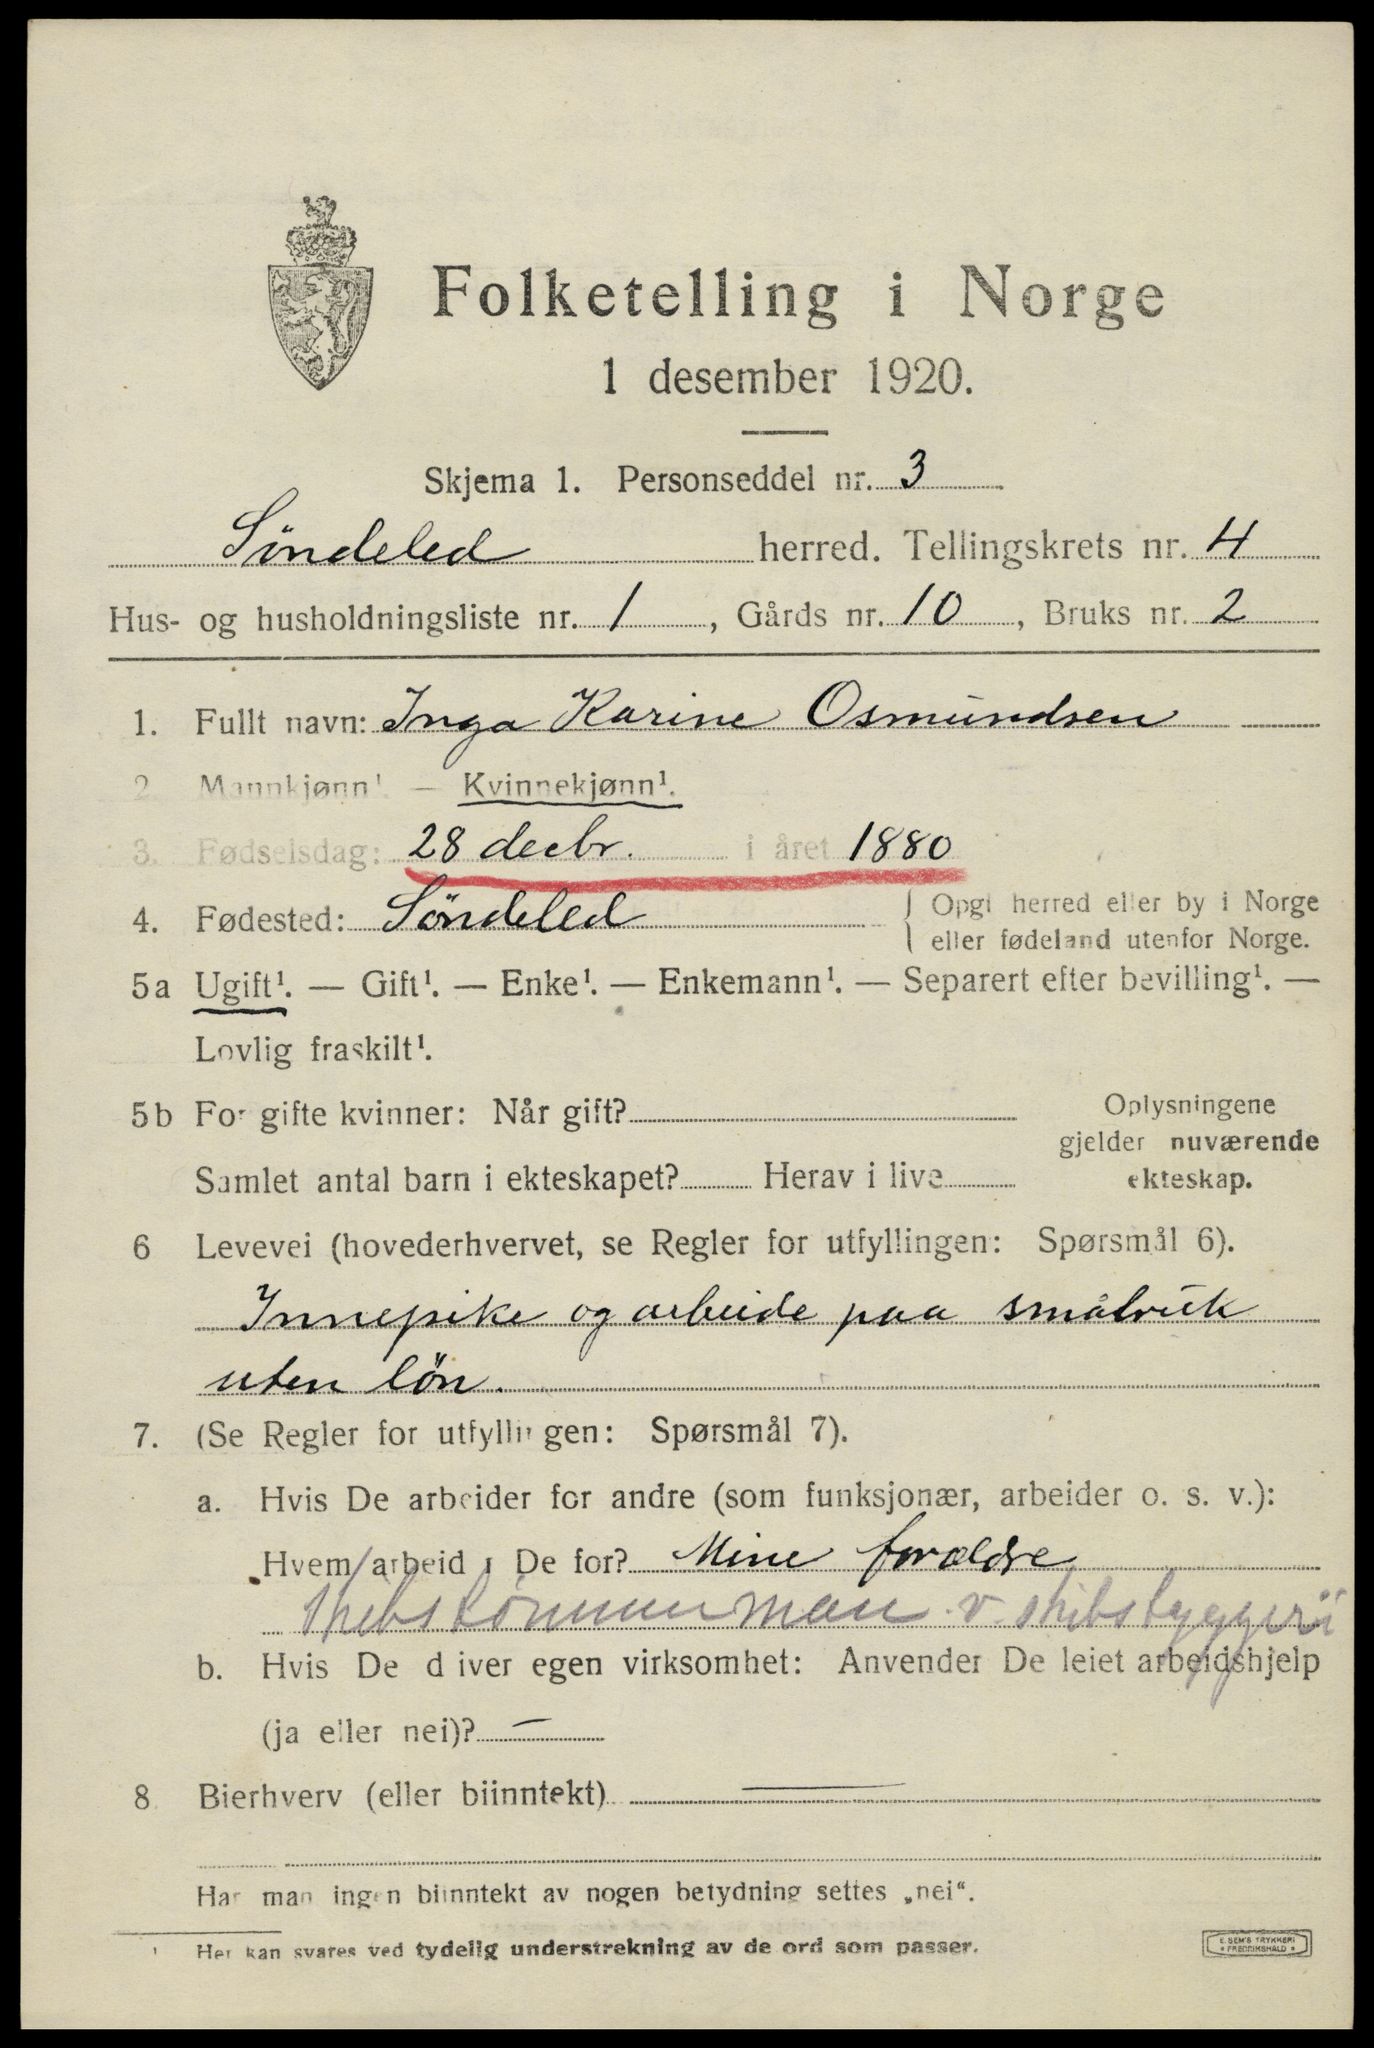 Folketelling i Norge
1 desember 1920.
Skjema 1. Personseddel nr. 3
Søndeled herred. Tellingskrets nr. 4
Hus- og husholdningsliste nr. 1, Gårds nr. 10, Bruks nr. 2
1. Fullt navn: Inga Karine Osmundsen
2 Mannkjønn¹. — Kvinnekjønn¹.
3. Fødselsdag: 28 decbr. i året 1880
4. Fødested: Söndeled { Opgi herred eller by i Norge
eller fødeland utenfor Norge.
5a Ugift¹. — Gift¹. — Enke¹. — Enkemann¹. — Separert efter bevilling¹. —
Lovlig fraskilt¹.
5b For gifte kvinner: Når gift? Oplysningene
gjelder nuværende
Samlet antal barn i ekteskapet? Herav i live ekteskap.
6 Levevei (hovederhvervet, se Regler for utfyllingen: Spørsmål 6).
Innepike og arbeide paa småbruk
uten lön.
7. (Se Regler for utfyllingen: Spørsmål 7).
a. Hvis De arbeider for andre (som funksjonær, arbeider o. s. v.):
Hvem arbeider De for? Mine forældre
Skibstömmerman v. skibsbyggeri
b. Hvis De driver egen virksomhet: Anvender De leiet arbeidshjelp
(ja eller nei)? —
8. Bierhverv (eller biinntekt) —
Har man ingen biinntekt av nogen betydning settes „nei“.
¹ Her kan svares ved tydelig understrekning av de ord som passer.
E. SEM'S TRYKKERI
* FREDRIKSHALD *